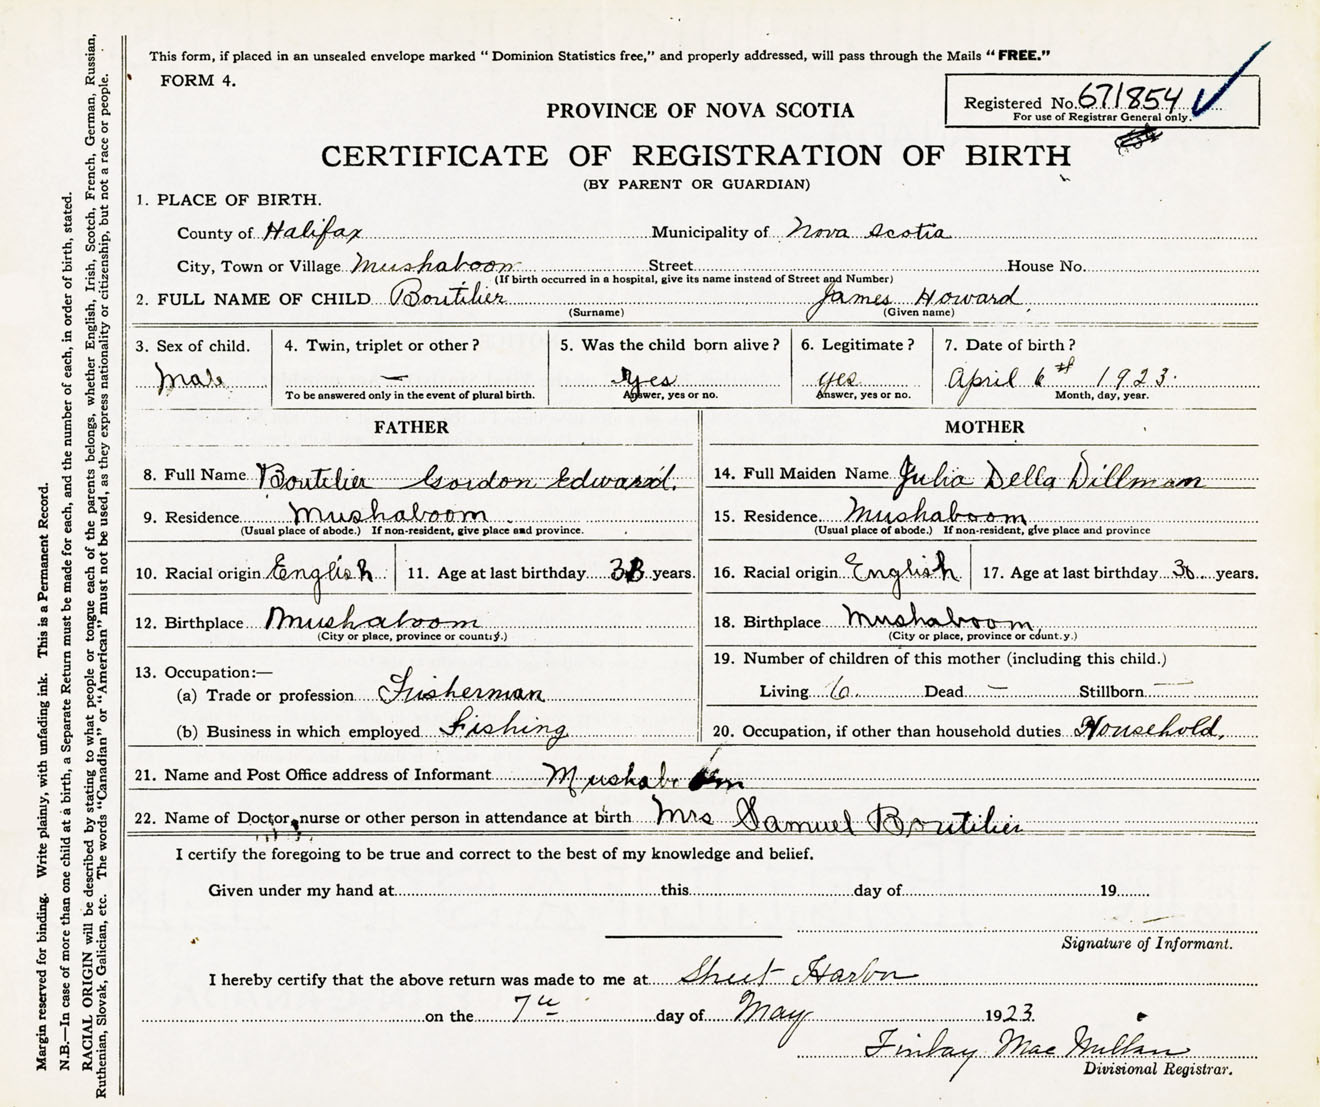 This form, if placed in an unsealed envelope marked “ Dominion Statistics free,” and properly addressed, will pass through the Mails “ FREE.”
FORM 4.
Registered No. 671854
For use of Registrar General only.
PROVINCE OF NOVA SCOTIA
CERTIFICATE OF REGISTRATION OF BIRTH
(BY PARENT OR GUARDIAN)
1. PLACE OF BIRTH.
County of Halifax Municipality of Nova Scotia
City, Town or Village Mushaboom Street House No.
(If birth occurred in a hospital, give its name instead of Street and Number)
2. FULL NAME OF CHILD Boutilier James Howard
(Surname) (Given name)
3. Sex of child. 4. Twin, triplet or other? 5. Was the child born alive? 6. Legitimate? 7. Date of birth?
Male — Yes yes April 6th 1923.
To be answered only in the event of plural birth. Answer, yes or no. Answer, yes or no. Month, day, year.
FATHER MOTHER
8. Full Name Boutilier Gordon Edward. 14. Full Maiden Name Julia Della Dillman
9. Residence Mushaboom 15. Residence Mushaboom
(Usual place of abode.) If non-resident, give place and province. (Usual place of abode.) If non-resident, give place and province
10. Racial origin English 11. Age at last birthday years. 16. Racial origin English 17. Age at last birthday years.
12. Birthplace Mushaboom 18. Birthplace Mushaboom
(City or place, province or country.) (City or place, province or country.)
13. Occupation:— 19. Number of children of this mother (including this child.)
(a) Trade or profession Fisherman Living 6. Dead — Stillborn —
(b) Business in which employed Fishing 20. Occupation, if other than household duties Household.
21. Name and Post Office address of Informant Mushaboom
22. Name of Doctor, nurse or other person in attendance at birth Mrs Samuel Boutilier
I certify the foregoing to be true and correct to the best of my knowledge and belief.
Given under my hand at this day of 19
Signature of Informant.
I hereby certify that the above return was made to me at Sheet Harbor
on the 7th day of May 1923
Finlay MacMillan
Divisional Registrar.
Margin reserved for binding. Write plainly, with unfading ink. This is a Permanent Record.
N.B.—In case of more than one child at a birth, a Separate Return must be made for each, and the number of each, in order of birth, stated.
RACIAL ORIGIN will be described by stating to what people or tongue each of the parents belongs, whether English, Irish, Scotch, French, German, Russian,
Ruthenian, Slovak, Galician, etc. The words “Canadian” or “American” must not be used, as they express nationality or citizenship, but not a race or people.